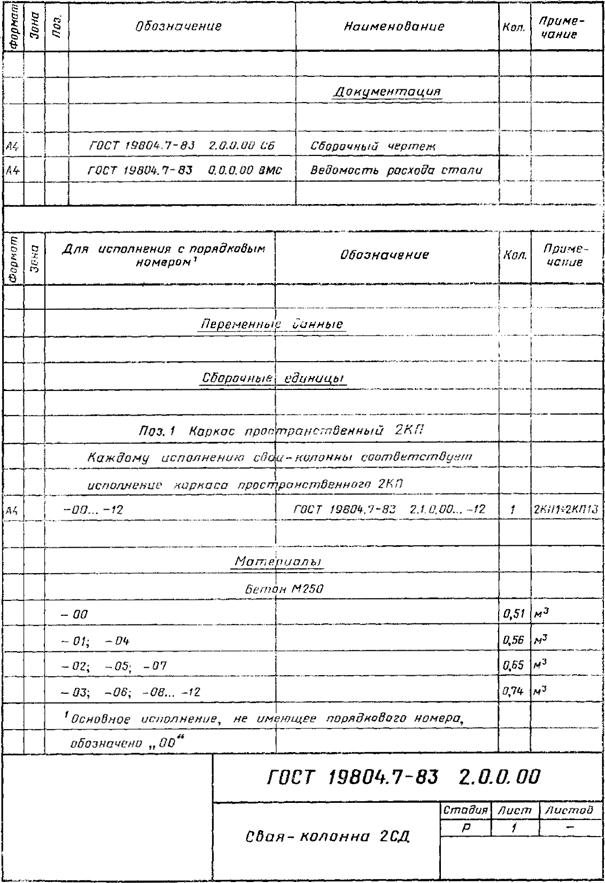 Формат Зона Поз. Обозначение Наименование Кол. Приме-
чание
Документация
А4 ГОСТ 19804.7-83 2.0.0.00 СБ Сборочный чертеж
А4 ГОСТ 19804.7-83 0.0.0.00 ВМС Ведомость расхода стали
Формат Зона Для исполнения с порядковым
номером¹ Обозначение Кол. Приме-
чание
Переменные данные
Сборочные единицы
Поз. 1 Каркас пространственный 2КП
Каждому исполнению сваи-колонны соответствует
исполнение каркаса пространственного 2КП
А4 -00... -12 ГОСТ 19804.7-83 2.1.0.00... -12 1 2КП1÷2КП13
Материалы
Бетон М250
- 00 0,51 м³
- 01; -04 0,56 м³
- 02; -05; -07 0,65 м³
- 03; -06; -08... -12 0,74 м³
¹Основное исполнение, не имеющее порядкового номера,
обозначено „00“
ГОСТ 19804.7-83 2.0.0.00
Свая-колонна 2СД
Стадия Лист Листов
Р 1 –